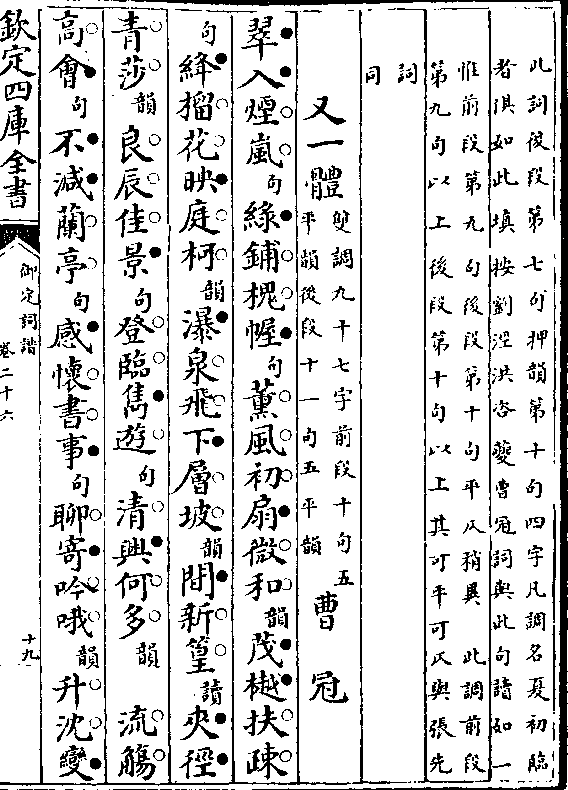 此詞後段第七句押韻第十句四字凡調名夏初臨
者俱如此填按劉涇洪咨夔曹冠詞與此句讀如一
惟前段第九句後段第十句平仄稍異　此調前段
第九句以上後段第十句以上其可平可仄與張先
詞
同
又一體雙調九十七字前段十句五
平韻後段十一句五平韻　曹　冠
翠入煙嵐句綠鋪槐幄句薰風初扇微和韻茂樾扶疎
句絳榴花映庭柯韻瀑泉飛下層坡韻間新篁讀夾徑
青莎韻良辰佳景句登臨雋遊句清興何多韻　流觴
高會句不減蘭亭句感懷書事句聊寄吟哦韻升沈變
欽定四庫全書
御定詞譜
卷二十六
十九